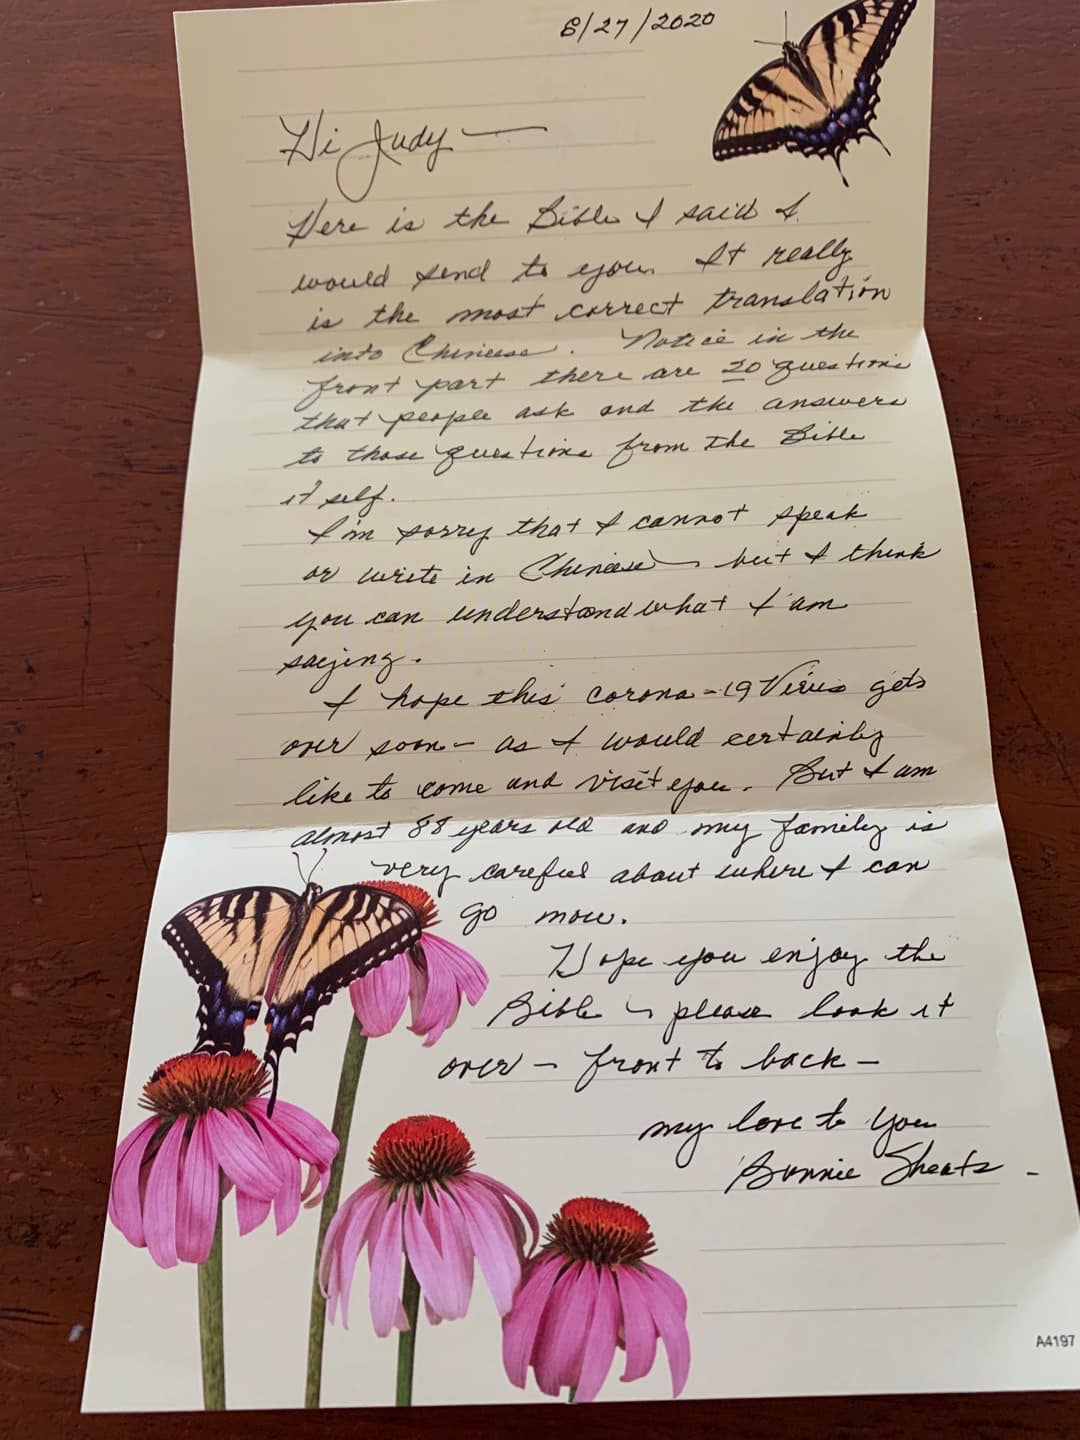 8/27/2020
Hi Judy —
Here is the Bible I said I
would send to you. It really
is the most correct translation
into Chinese. Notice in the
front part there are 20 questions
that people ask and the answers
to those questions from the Bible
itself.
I'm sorry that I cannot speak
or write in Chinese – but I think
you can understand what I am
saying.
I hope this corona-19 Virus gets
over soon – as I would certainly
like to come and visit you. But I am
almost 88 years old and my family is
very careful about where I can
go now.
Hope you enjoy the
Bible – please look it
over – front to back –
my love to you
Bonnie Sheats –
A4197